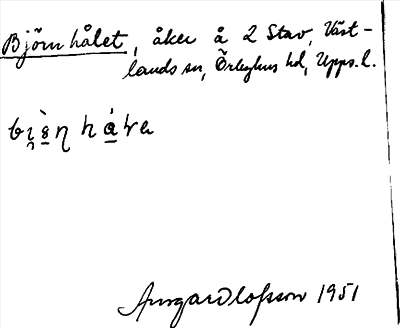 Björnhålet, åker å 2 Stav, Väst-
lands sn, Örbyhus hd, Upps. l.
Ingar Olofsson 1951